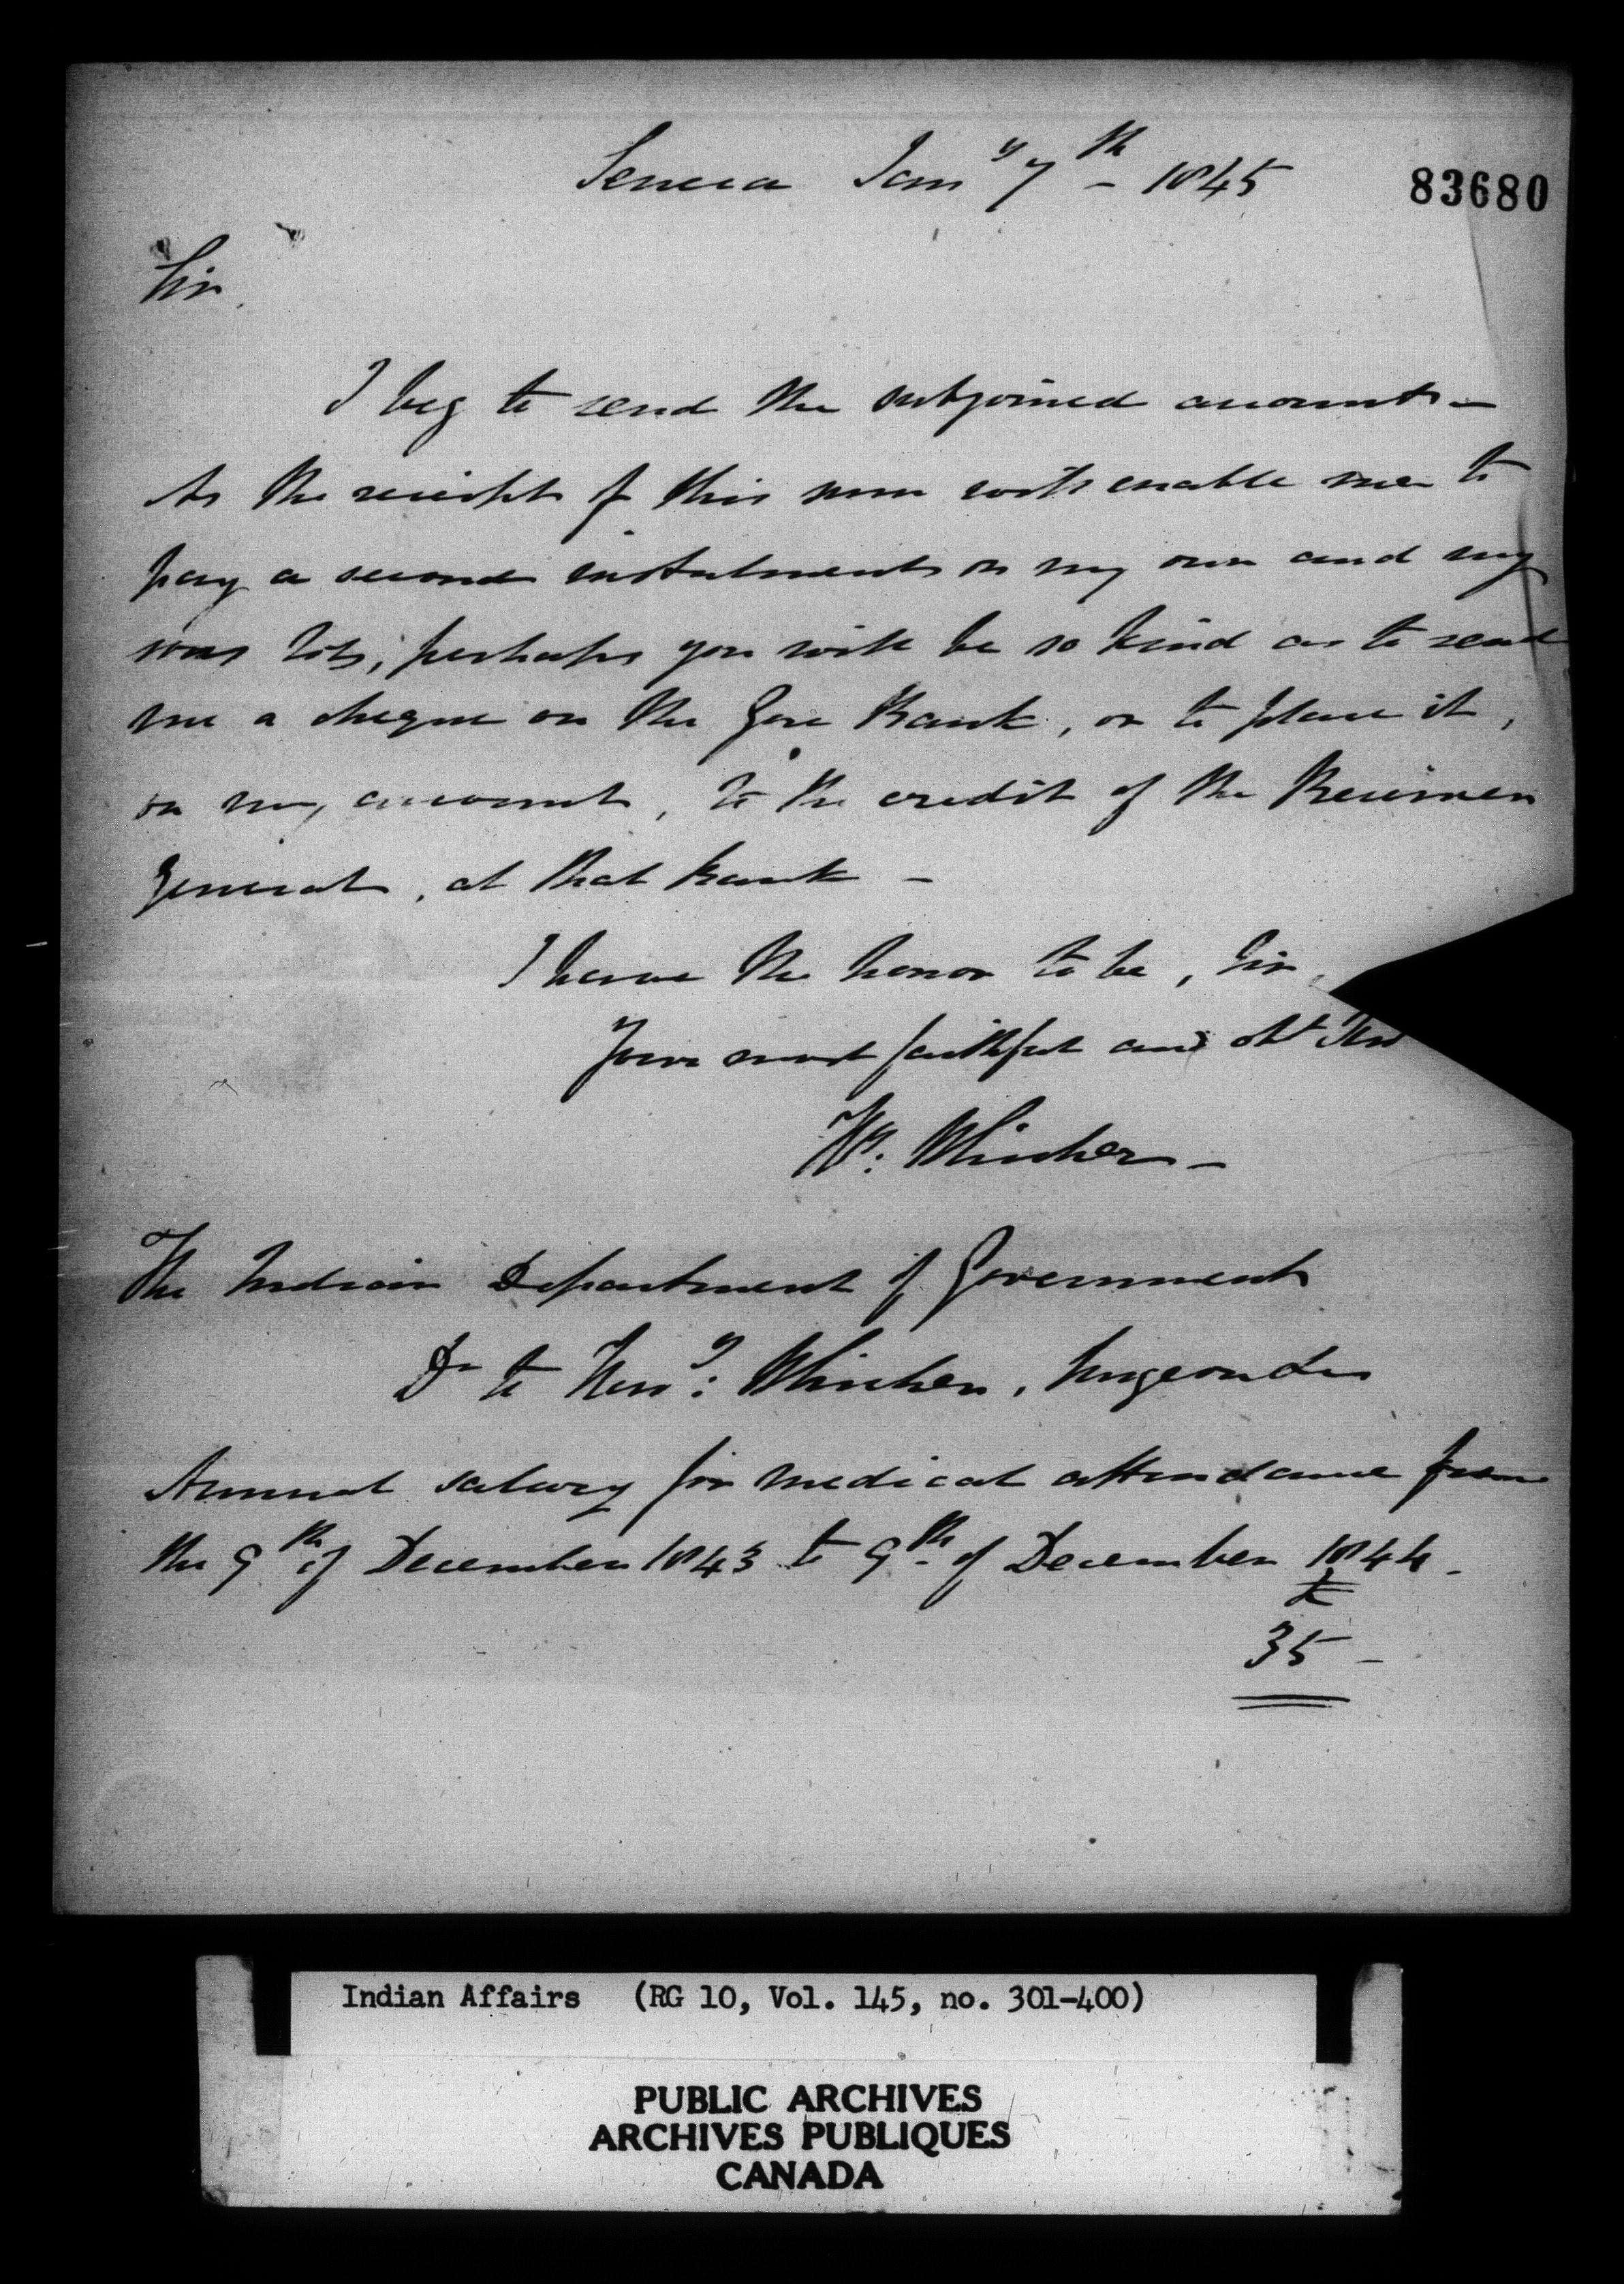 Seneca Jany 7th - 1845
83680
Sir,
I beg to send the subjoined account -
As the receipt of this sum will enable me to
pay a second instalment on my own and my
sons lots, perhaps you will be so kind as to send
me a cheque on the Gore Bank, or to place it,
on my account, to the credit of the Receiver
General, at that Bank -
I have the honor to be, Sir,
Your most faithful and obt
The Indian Department of Government
Dr to Surgeon
Annual salary for medical attendance from
the 9th of December 1843 to 9th of December 1844 -
£
35 -
Indian Affairs (RG 10, Vol. 145, no. 301-400)
PUBLIC ARCHIVES
ARCHIVES PUBLIQUES
CANADA